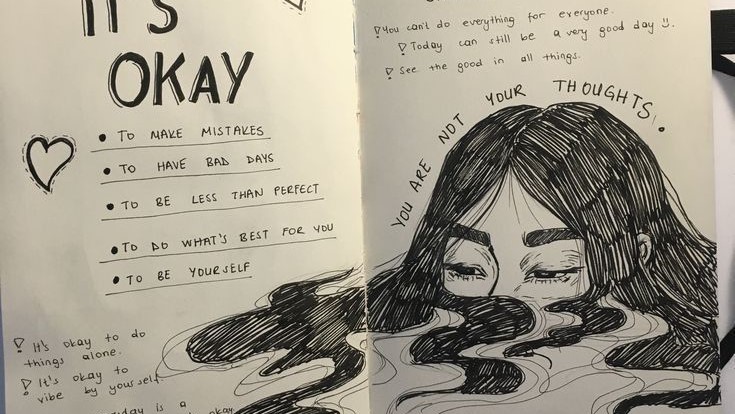 IT'S
OKAY
• TO MAKE MISTAKES
• TO HAVE BAD DAYS
• TO BE LESS THAN PERFECT
• TO DO WHAT'S BEST FOR YOU
• TO BE YOURSELF
It's okay to do
things alone.
It's okay to
vibe by yourself.
is a
okay
You can't do everything for everyone.
Today can still be a very good day :).
See the good in all things.
YOU ARE NOT YOUR THOUGHTS.